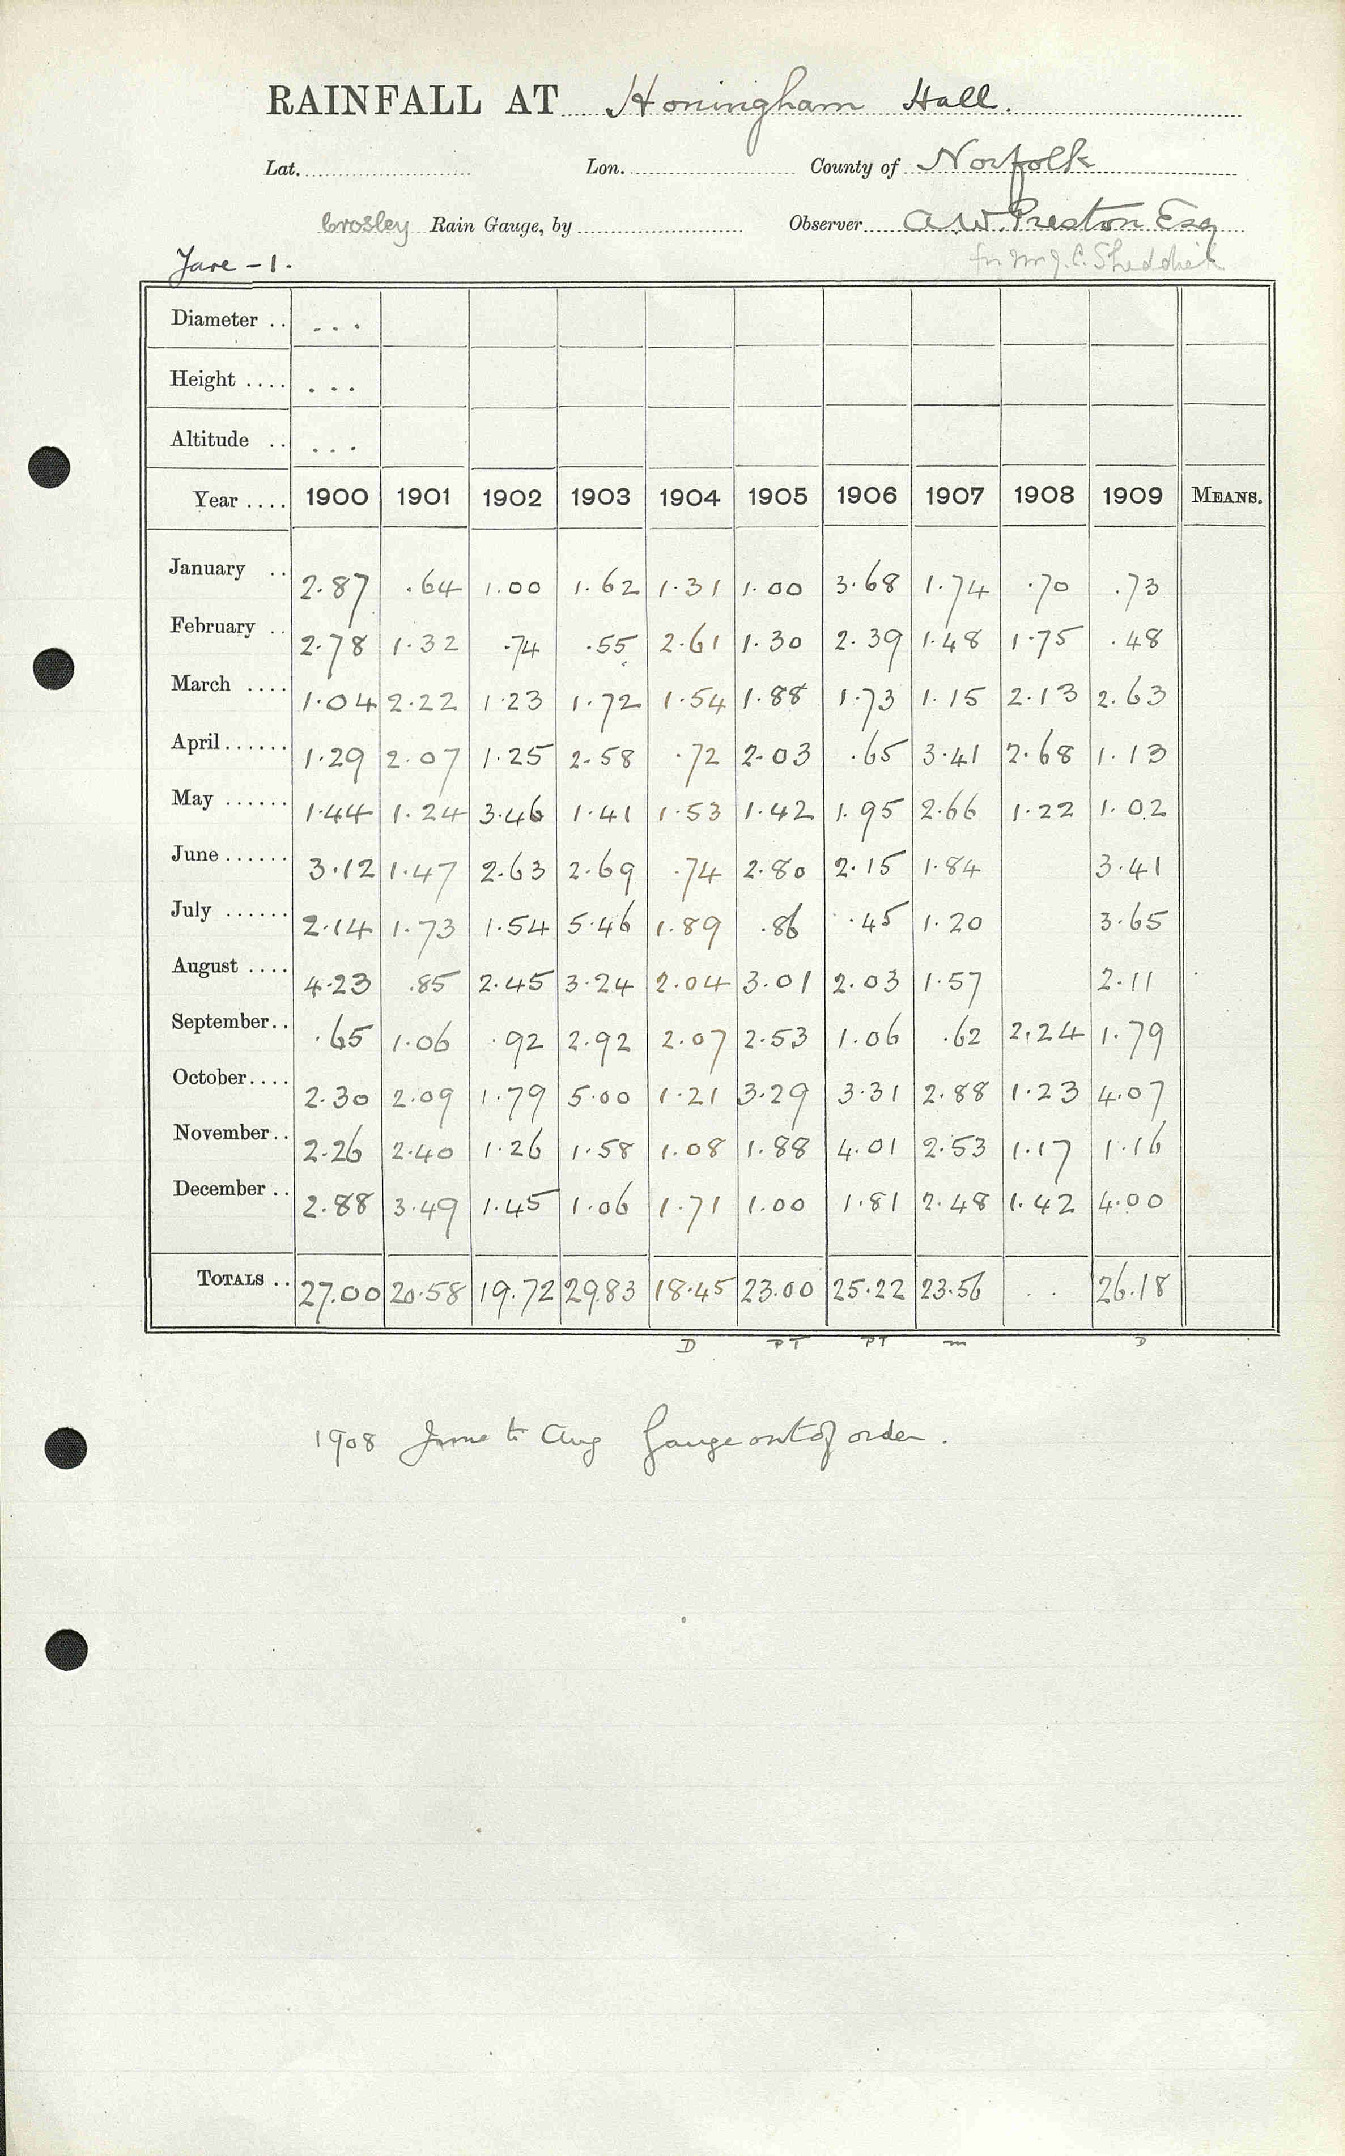 RAINFALL AT Honingham Hall.
Lat. Lon. County of Norfolk
Crosley Rain Gauge, by Observer A.W. Preston Esq
Yare - 1. for Mr J. C. Sheddick
Diameter .. ...
Height .... ...
Altitude .. ...
Year .... 1900 1901 1902 1903 1904 1905 1906 1907 1908 1909 MEANS.
January .. 2.87 .64 1.00 1.62 1.31 1.00 3.68 1.74 .70 .73
February .. 2.78 1.32 .74 .55 2.61 1.30 2.39 1.48 1.75 .48
March .... 1.04 2.22 1.23 1.72 1.54 1.88 1.73 1.15 2.13 2.63
April ...... 1.29 2.07 1.25 2.58 .72 2.03 .65 3.41 2.68 1.13
May ...... 1.44 1.24 3.46 1.41 1.53 1.42 1.95 2.66 1.22 1.02
June ...... 3.12 1.47 2.63 2.69 .74 2.80 2.15 1.84 3.41
July ...... 2.14 1.73 1.54 5.46 1.89 .86 .45 1.20 3.65
August .... 4.23 .85 2.45 3.24 2.04 3.01 2.03 1.57 2.11
September.. .65 1.06 .92 2.92 2.07 2.53 1.06 .62 2.24 1.79
October.... 2.30 2.09 1.79 5.00 1.21 3.29 3.31 2.88 1.23 4.07
November.. 2.26 2.40 1.26 1.58 1.08 1.88 4.01 2.53 1.17 1.16
December .. 2.88 3.49 1.45 1.06 1.71 1.00 1.81 2.48 1.42 4.00
TOTALS .. 27.00 20.58 19.72 29.83 18.45 23.00 25.22 23.56 . . 26.18
D PT PT m D
1908 June to Aug Gauge out of order.